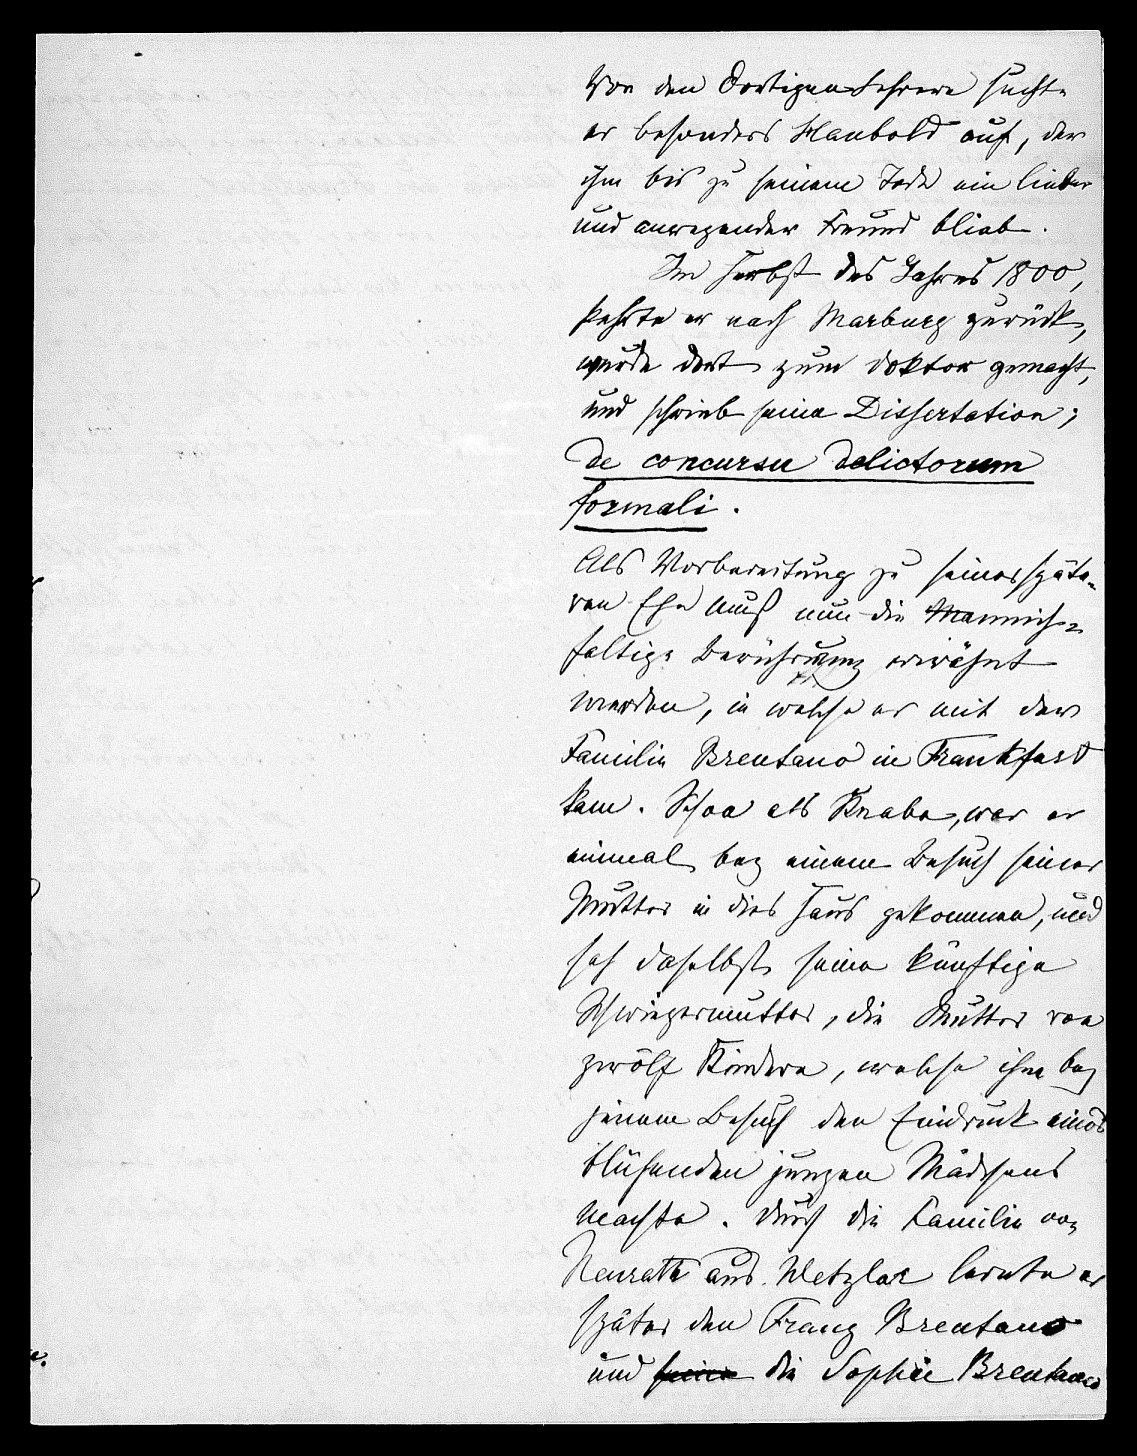 Von den dortigen Lehrern suchte
er besonders Haubold auf, der
ihm bis zu seinem Tode ein lieber
und anregender Freund blieb.
Im Herbst des Jahres 1800,
kehrte er nach Marburg zurück,
wurde dort zum Doktor gemacht,
und schrieb seine Dissertation;
de concursu delictorum
formali.
Als Vorbereitung zu seiner späte-
ren Ehe muß nun die Mannich-
faltige Berührung erwähnt
werden, in welche er mit der
Familie Brentano in Frankfurt
kam. Schon als Knabe, war er
einmal bey einem Besuch seiner
Mutter in dies Haus gekommen, und
sah daselbst seine künftige
Schwiegermutter, die Mutter von
zwölf Kindern, welche ihm bey
jenem Besuch den Eindruck eines
blühenden jungen Mädchens
machte. Durch die Familie von
Neurath aus Wetzlar lernte er
später den Franz Brentano
und seine die Sophie Brentano